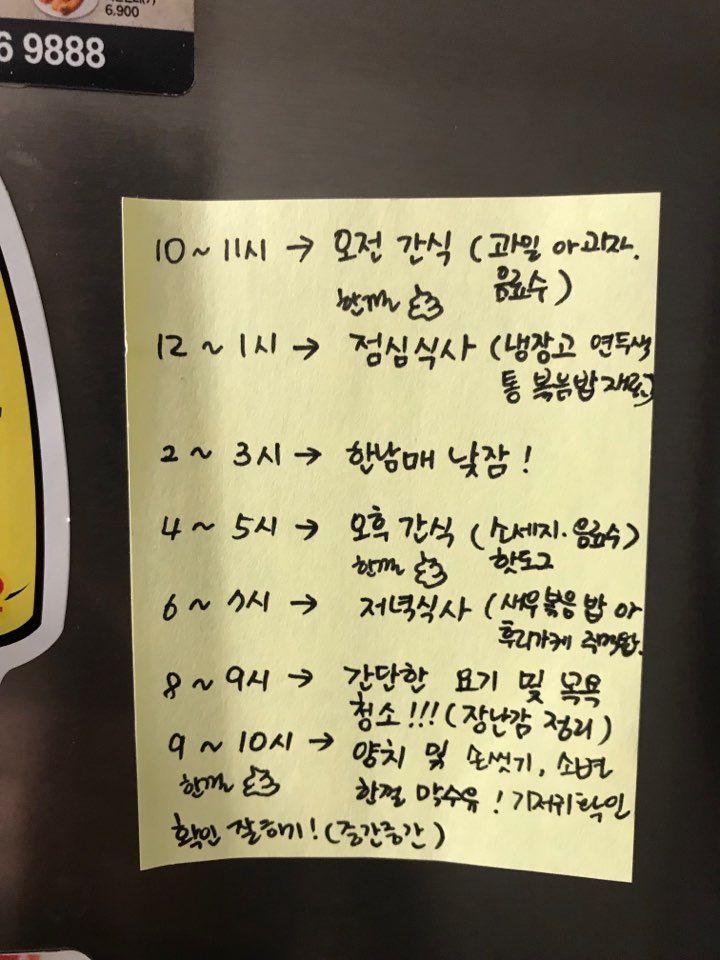 6.900
6 9888
10 ~ 11시 → 오전 간식 (과일 야 과자.
음료수)
12 ~ 1시 → 점심식사 (냉장고 연두색
통 볶음밥 재료)
2 ~ 3시 → 한남매 낮잠!
4 ~ 5시 → 오후 간식 (소세지. 음료수)
핫도그
6 ~ 7시 → 저녁식사 (새우볶음밥 or
후리가케 주먹밥.
8 ~ 9시 → 간단한 요기 및 목욕
청소!!! (장난감 정리)
9 ~ 10시 → 양치 및 손씻기, 소변
막수유! 기저귀 확인
확인 잘하기! (중간중간)